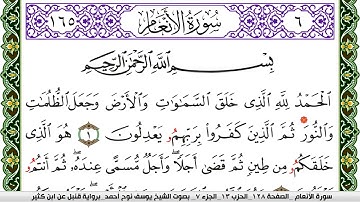 ٦ سُورَةُ الأَنْعَام ١٦٥
بِسْمِ اللَّهِ الرَّحْمَٰنِ الرَّحِيمِ
الْحَمْدُ لِلَّهِ الَّذِي خَلَقَ السَّمَٰوَٰتِ وَالْأَرْضَ وَجَعَلَ الظُّلُمَٰتِ
وَالنُّورَ ثُمَّ الَّذِينَ كَفَرُوا بِرَبِّهِمُۥ يَعْدِلُونَ ١ هُوَ الَّذِي
خَلَقَكُمُۥ مِن طِينٍ ثُمَّ قَضَىٰ أَجَلًا وَأَجَلٌ مُّسَمًّى عِندَهُۥ ثُمَّ أَنتُمُۥ
سورة الأنعام الصفحة ١٢٨ الحزب ١٣ الجزء ٧ بصوت الشيخ يوسف نوح أحمد برواية قنبل عن ابن كثير